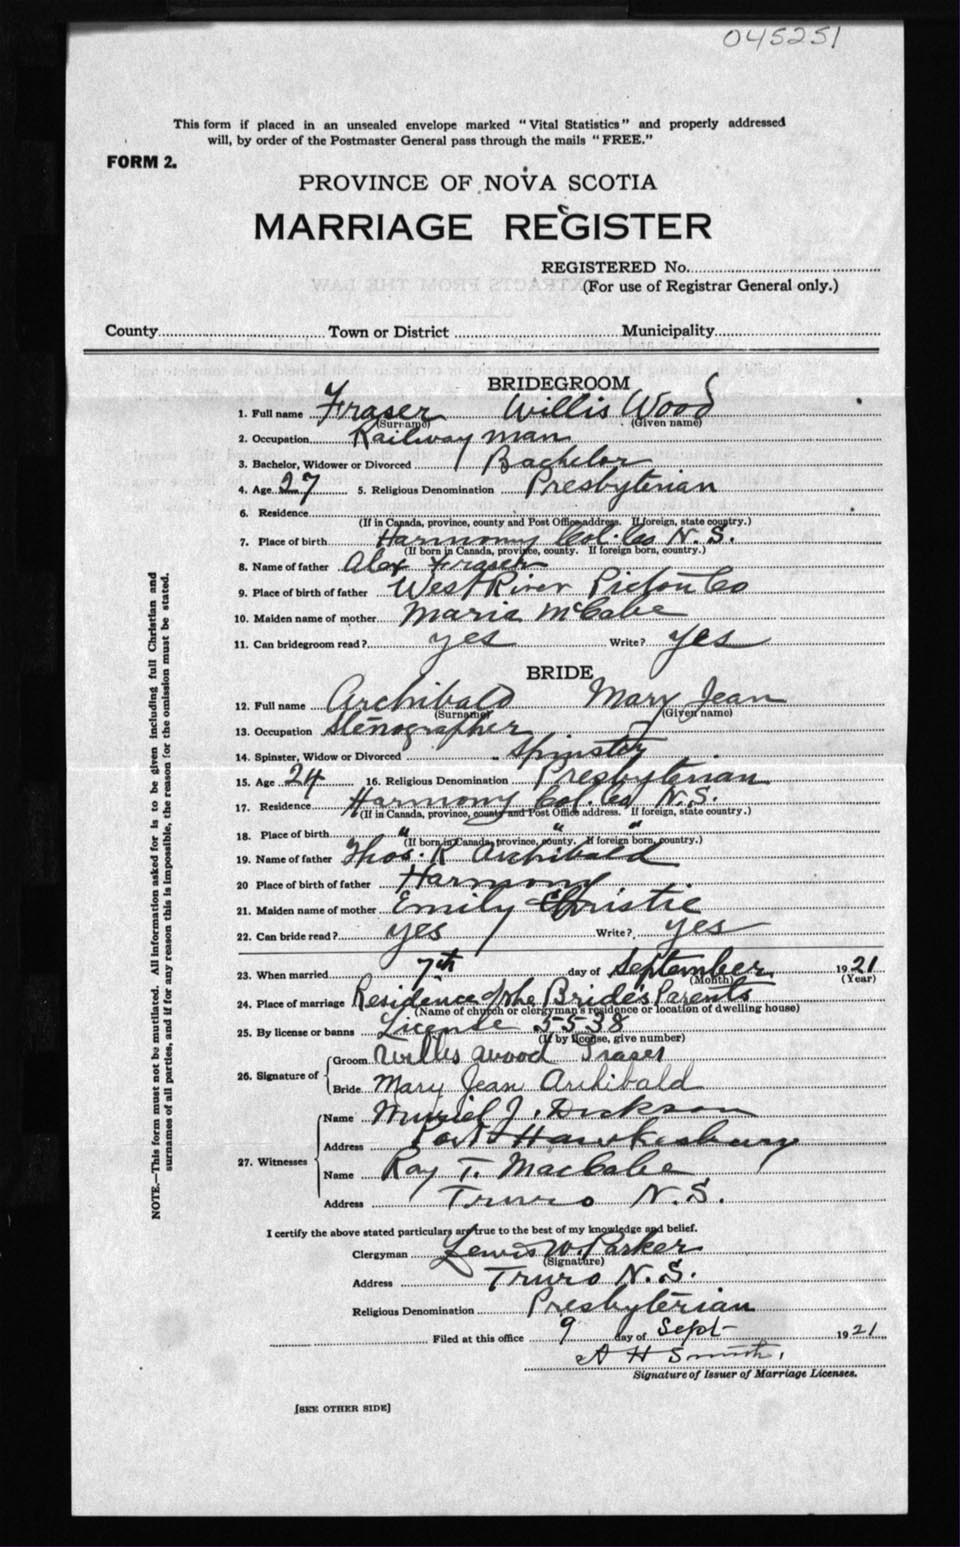 045251
This form if placed in an unsealed envelope marked "Vital Statistics" and properly addressed
will, by order of the Postmaster General pass through the mails "FREE."
FORM 2.
PROVINCE OF NOVA SCOTIA
MARRIAGE REGISTER
REGISTERED No.
(For use of Registrar General only.)
County Town or District Municipality
BRIDEGROOM
1. Full name Fraser Willis Wood
(Surname) (Given name)
2. Occupation Railway man
3. Bachelor, Widower or Divorced Bachelor
4. Age 27 5. Religious Denomination Presbyterian
6. Residence
(If in Canada, province, county and Post Office address. If foreign, state country.)
7. Place of birth Harmony Col. Co N.S.
(If born in Canada, province, county. If foreign born, country.)
8. Name of father Alex Fraser
9. Place of birth of father West River Pictou Co
10. Maiden name of mother Maria McCabe
11. Can bridegroom read? yes Write? yes
BRIDE
12. Full name Archibald Mary Jean
(Surname) (Given name)
13. Occupation Stenographer
14. Spinster, Widow or Divorced Spinster
15. Age 24 16. Religious Denomination Presbyterian
17. Residence Harmony Col. Co N.S.
(If in Canada, province, county and Post Office address. If foreign, state country.)
18. Place of birth " " "
(If born in Canada, province, county. If foreign born, country.)
19. Name of father Thos. R Archibald
20 Place of birth of father Harmony
21. Maiden name of mother Emily Christie
22. Can bride read? yes Write? yes
23. When married 7th day of September 1921
(Month) (Year)
24. Place of marriage Residence of the Bride's Parents
(Name of church or clergyman's residence or location of dwelling house)
25. By license or banns License 5538
(If by license, give number)
26. Signature of Groom Willis Wood Fraser
Bride Mary Jean Archibald
27. Witnesses Name Muriel J. Dickson
Address Port Hawkesbury
Name Ray T. MacCabe
Address Truro N.S.
I certify the above stated particulars are true to the best of my knowledge and belief.
Clergyman Lewis W. Parker
(Signature)
Address Truro N.S.
Religious Denomination Presbyterian
Filed at this office 9 day of Sept 1921
A H Smith.
Signature of Issuer of Marriage Licenses.
[SEE OTHER SIDE]
NOTE.—This form must not be mutilated. All information asked for is to be given including full Christian and
surnames of all parties, and if for any reason this is impossible, the reason for the omission must be stated.